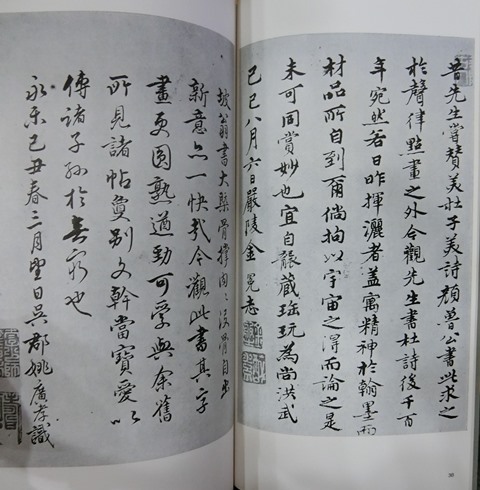 昔先生嘗贊美杜子美詩顏魯公書此求之
於聲律點畫之外今觀先生書杜詩後千百
年宛然若日昨揮灑者蓋寓精神於翰墨而
材品所自到爾倘拘以宇宙之得而論之是
未可同賞妙也宜自藏珍玩為尚洪武
己巳八月六日嚴陵金冕志
坡翁書大槩骨撐肉〻沒骨自出
新意亦一快我今觀此書其字
畫更圓熟遒勁可學與余舊
所見諸帖敻別文幹當寶愛以
傳諸子孫於無窮也
永樂己丑春三月望日吳郡姚廣孝識